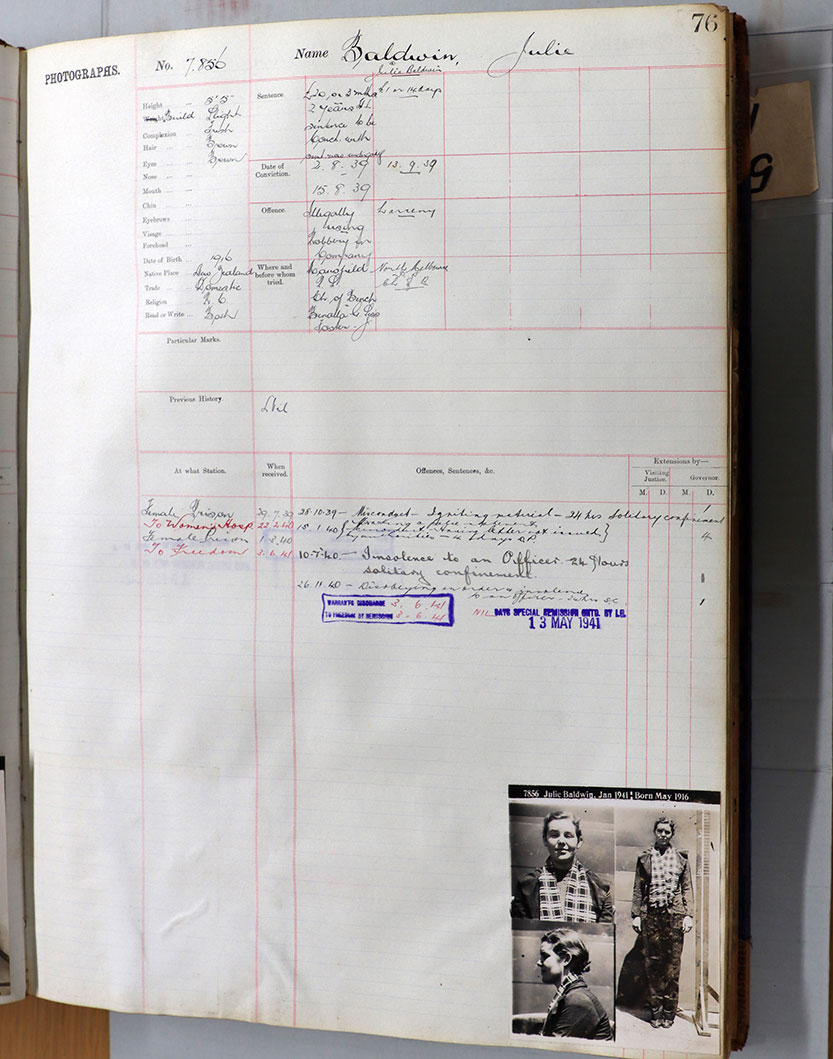 76
PHOTOGRAPHS.
No. 7.856 Name Baldwin, Julie
Julia Baldwin
Height ... 5' 5"
Build Slight
Complexion ... Fresh
Hair ... Brown
Eyes ... Brown
Nose ...
Mouth ...
Chin ...
Eyebrows ...
Visage ...
Forehead ...
Date of Birth ... 1916
Native Place ... New Zealand
Trade ... Domestic
Religion ... R. C.
Read or Write ... Both
Sentence. £20 or 3 mths £1 or 14 days
2 years
sentence to be
conc. with
Date of
Conviction. 2. 8. 39 13. 9. 39
15. 8. 39
Offence. Illegally Larceny
using
Robbery in
Company
Where and
before whom
tried. Mansfield North Melbourne
P. S.
Benalla
Particular Marks.
Previous History. Nil
At what Station. When
received. Offences, Sentences, &c. Extensions by—
Visiting
Justice. Governor.
M. D. M. D.
Female Prison 29. 7. 39 28.10.39 — Misconduct — Igniting material — 24 hrs solitary confinement 1
To Women's Hosp 22. 2. 40 15. 1. 40 4
Female Prison 1. 3. 40
To Freedom 3. 6. 41 10-7-40 — Insolence to an Officer — 24 Hours
solitary confinement. 1
26. 11. 40 — Disobeying an order & insolence
to an officer — 24 hrs SC 1
WARRANTS DISCHARGE 3. 6. 41
TO FREEDOM BY REMISSION 3. 6. 41
NIL DAYS SPECIAL REMISSION GNTD. BY I.G.
13 MAY 1941
7856 Julie Baldwin, Jan 1941: Born May 1916